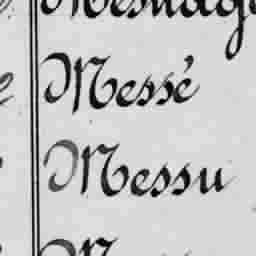 Messé
Messu